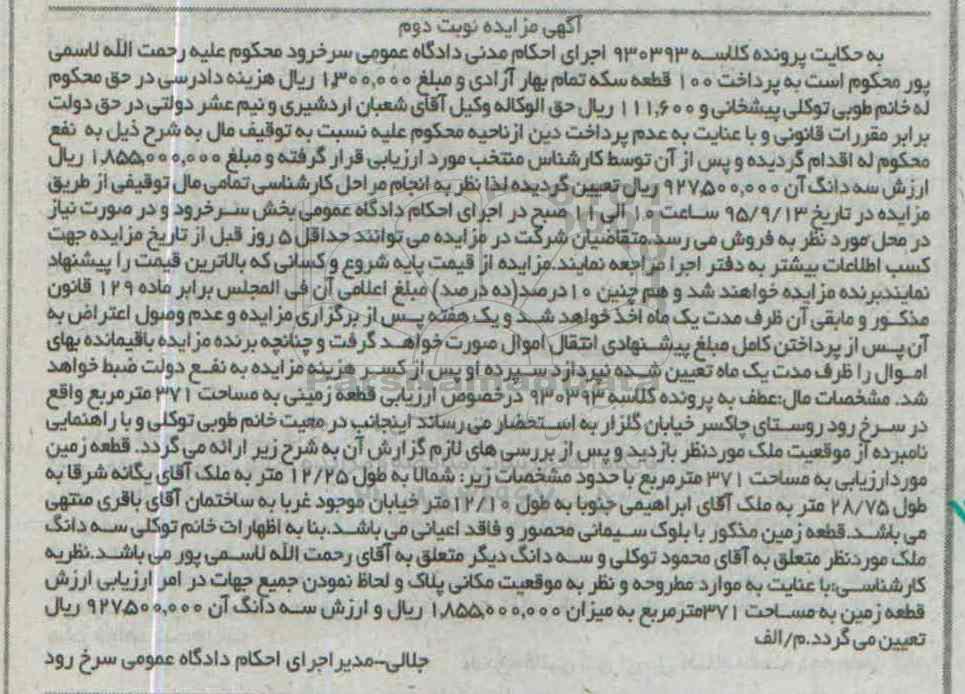 آگهی مزایده نوبت دوم
به حکایت پرونده کلاسه ۹۳۰۳۹۳ اجرای احکام مدنی دادگاه عمومی سرخرود محکوم علیه رحمت الله لاسمی
پور محکوم است به پرداخت ۱۰۰ قطعه سکه تمام بهار آزادی و مبلغ ۱,۳۰۰,۰۰۰ ریال هزینه دادرسی در حق محکوم
له خانم طوبی توکلی پیشخانی و ۱۱۱,۶۰۰ ریال حق الوکاله وکیل آقای شعبان اردشیری و نیم عشر دولتی در حق دولت
برابر مقررات قانونی و با عنایت به عدم پرداخت دین ازناحیه محکوم علیه نسبت به توقیف مال به شرح ذیل به نفع
محکوم له اقدام گردیده و پس از آن توسط کارشناس منتخب مورد ارزیابی قرار گرفته و مبلغ ۱,۸۵۵,۰۰۰,۰۰۰ ریال
ارزش سه دانگ آن ۹۲۷,۵۰۰,۰۰۰ ریال تعیین گردیده لذا نظر به انجام مراحل کارشناسی تمامی مال توقیفی از طریق
مزایده در تاریخ ۹۵/۹/۱۳ ساعت ۱۰ الی ۱۱ صبح در اجرای احکام دادگاه عمومی بخش سرخرود و در صورت نیاز
در محل مورد نظر به فروش می رسد.متقاضیان شرکت در مزایده می توانند حداقل ۵ روز قبل از تاریخ مزایده جهت
کسب اطلاعات بیشتر به دفتر اجرا مراجعه نمایند.مزایده از قیمت پایه شروع و کسانی که بالاترین قیمت را پیشنهاد
نمایندبرنده مزایده خواهند شد و هم چنین ۱۰درصد(ده درصد) مبلغ اعلامی آن فی المجلس برابر ماده ۱۲۹ قانون
مذکور و مابقی آن ظرف مدت یک ماه اخذ خواهد شد و یک هفته پس از برگزاری مزایده و عدم وصول اعتراض به
آن پس از پرداختن کامل مبلغ پیشنهادی انتقال اموال صورت خواهد گرفت و چنانچه برنده مزایده باقیمانده بهای
اموال را ظرف مدت یک ماه تعیین شده نپردازد سپرده او پس از کسر هزینه مزایده به نفع دولت ضبط خواهد
شد. مشخصات مال:عطف به پرونده کلاسه ۹۳۰۳۹۳ درخصوص ارزیابی قطعه زمینی به مساحت ۳۷۱ مترمربع واقع
در سرخ رود روستای چاکسر خیابان گلزار به استحضار می رساند اینجانب در معیت خانم طوبی توکلی و با راهنمایی
نامبرده از موقعیت ملک موردنظر بازدید و پس از بررسی های لازم گزارش آن به شرح زیر ارائه می گردد. قطعه زمین
موردارزیابی به مساحت ۳۷۱ مترمربع با حدود مشخصات زیر: شمالا به طول ۱۲/۲۵ متر به ملک آقای یگانه شرقا به
طول ۲۸/۷۵ متر به ملک آقای ابراهیمی جنوبا به طول ۱۲/۱۰متر خیابان موجود غربا به ساختمان آقای باقری منتهی
می باشد.قطعه زمین مذکور با بلوک سیمانی محصور و فاقد اعیانی می باشد.بنا به اظهارات خانم توکلی سه دانگ
ملک موردنظر متعلق به آقای محمود توکلی و سه دانگ دیگر متعلق به آقای رحمت الله لاسمی پور می باشد.نظریه
کارشناسی:با عنایت به موارد مطروحه و نظر به موقعیت مکانی پلاک و لحاظ نمودن جمیع جهات در امر ارزیابی ارزش
قطعه زمین به مساحت ۳۷۱مترمربع به میزان ۱,۸۵۵,۰۰۰,۰۰۰ ریال و ارزش سه دانگ آن ۹۲۷,۵۰۰,۰۰۰ ریال
تعیین می گردد.م/الف
جلالی-مدیر اجرای احکام دادگاه عمومی سرخ رود
ParsNamadData